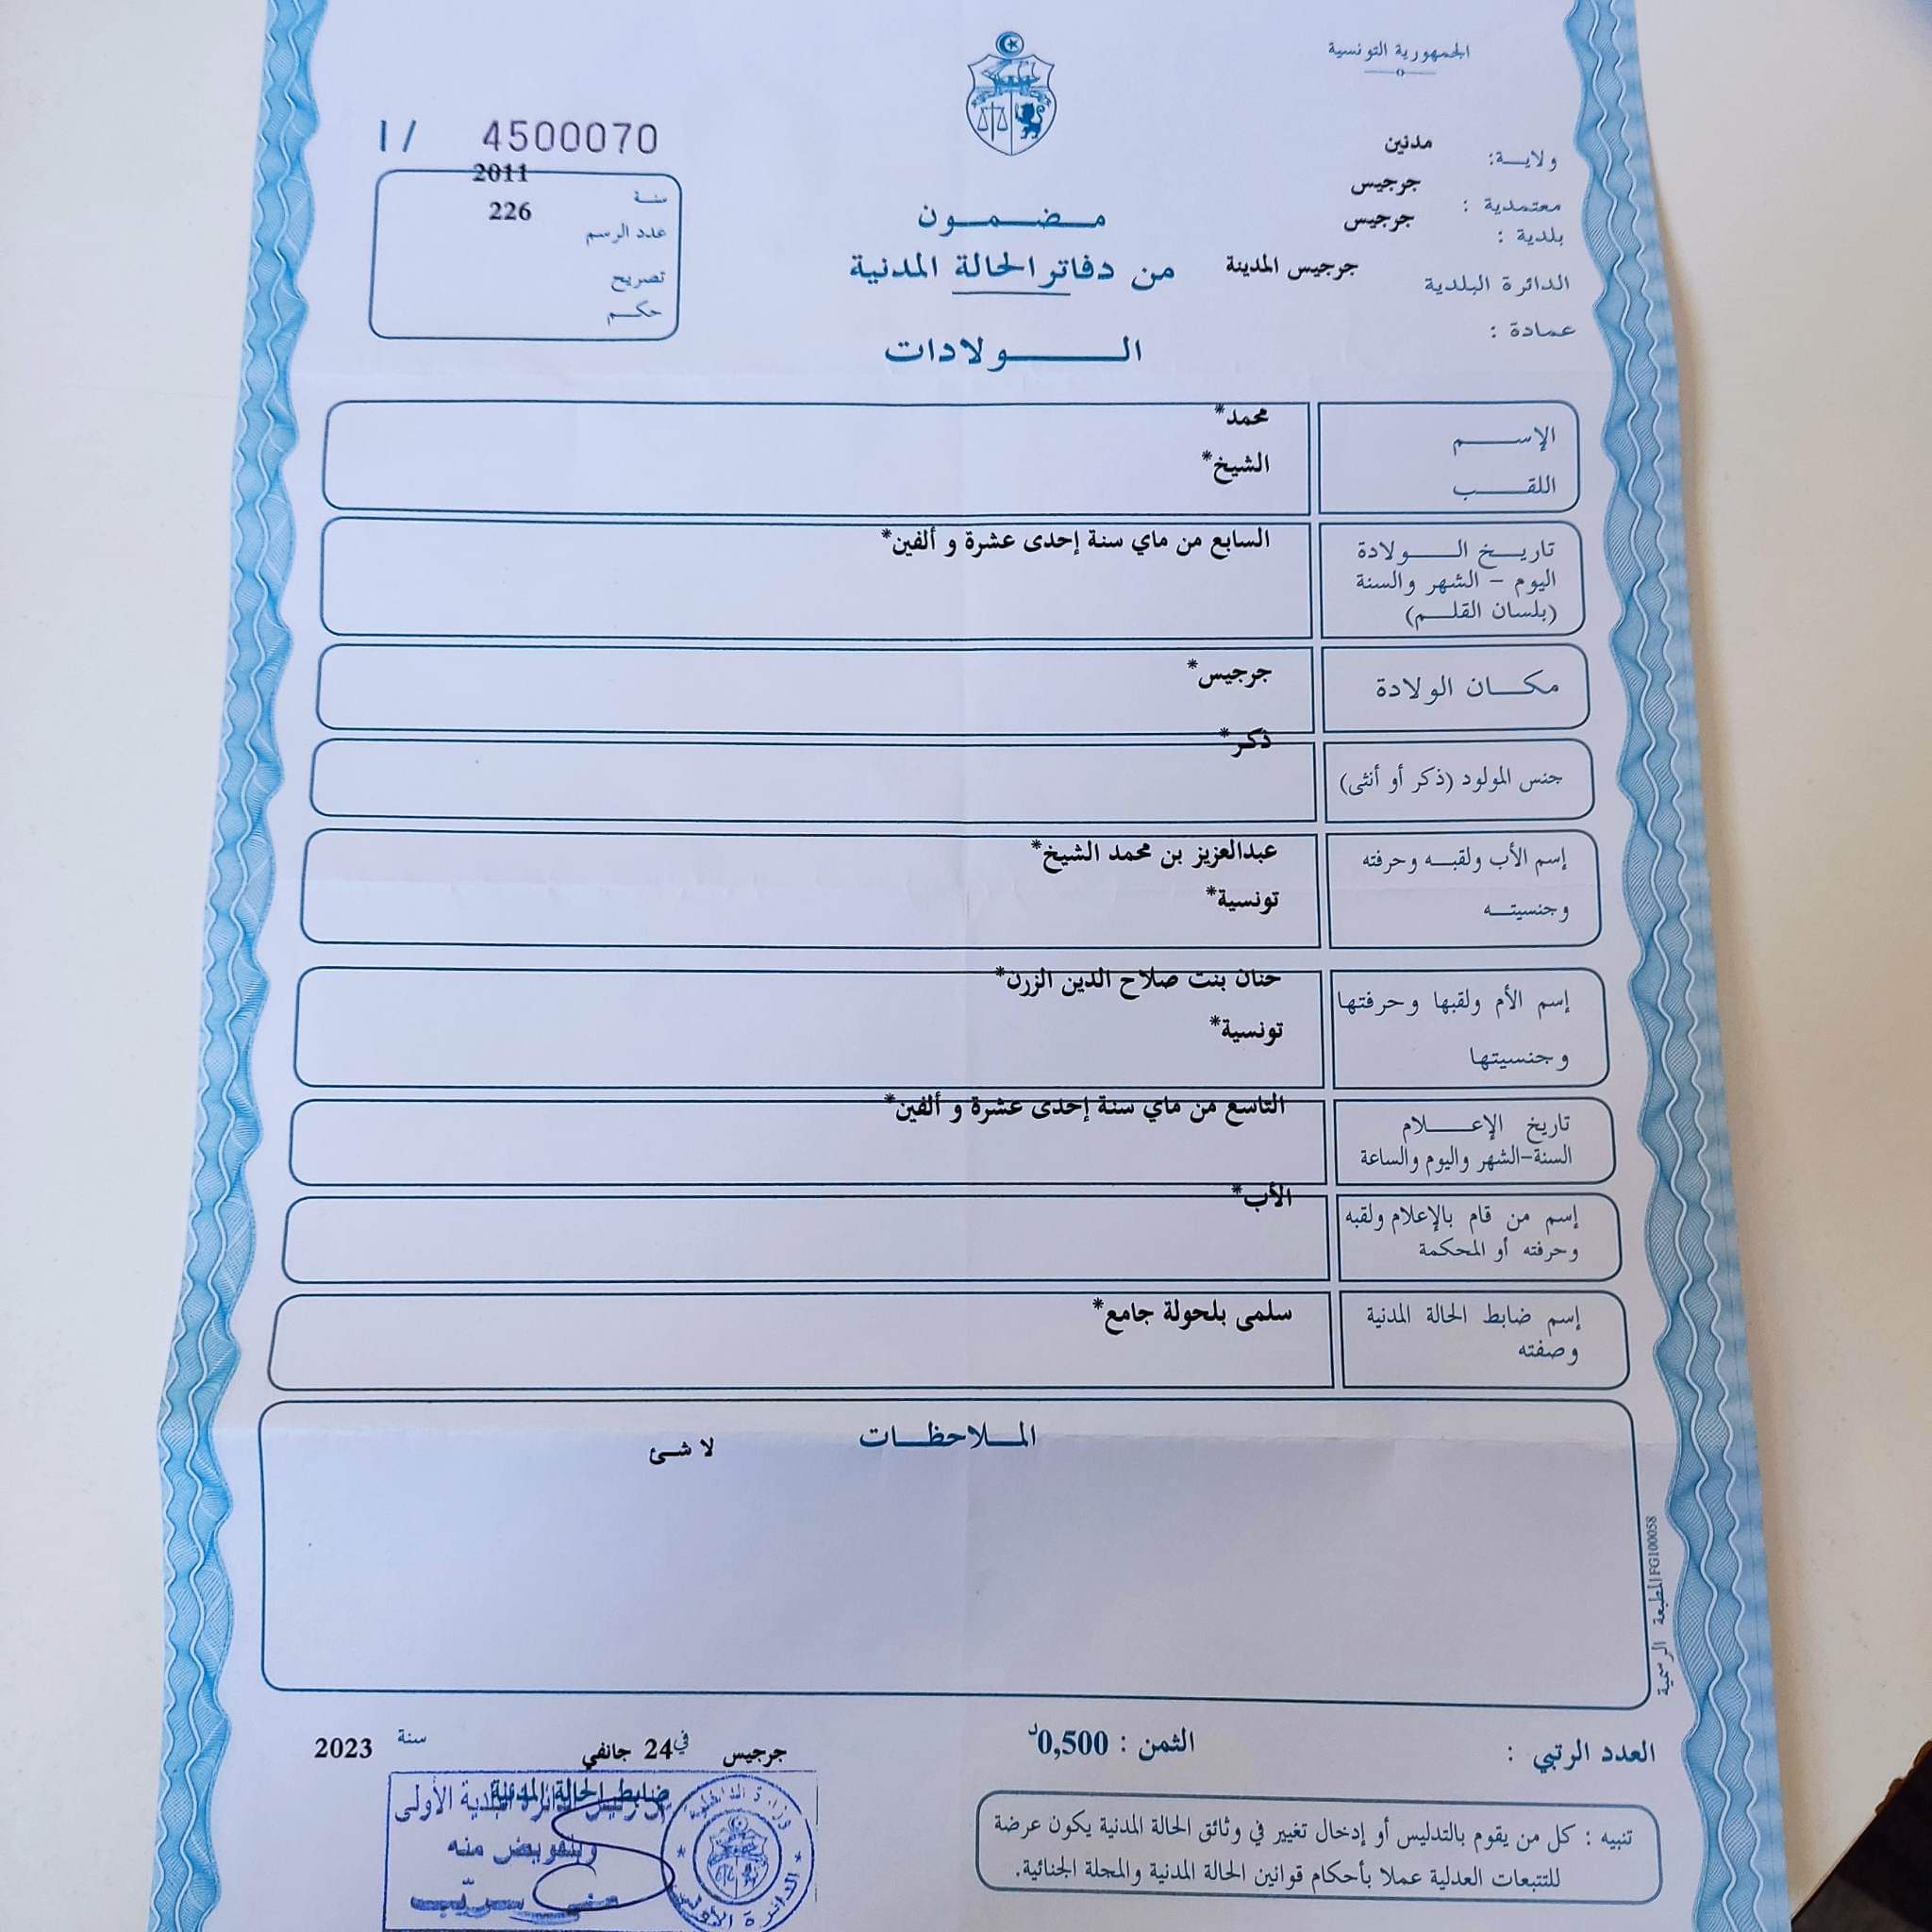 الجمهورية التونسية
ولايـــة: مدنين
معتمدية : جرجيس
بلدية : جرجيس
الدائرة البلدية جرجيس المدينة
عمادة :
مـــضـــمـــون
من دفاتر الحالة المدنية
الـــــولادات
1/ 4500070
سنــة 2011
عدد الرسم 226
تصريح
حكــم
الإســـــم محمد*
اللقـــب الشيخ*
تاريــخ الـــــولادة السابع من ماي سنة إحدى عشرة و ألفين*
اليوم - الشهر والسنة
(بلسان القلــم)
مكـــان الولادة جرجيس*
جنس المولود (ذكر أو أنثى) ذكر*
إسم الأب ولقبــه وحرفته عبدالعزيز بن محمد الشيخ*
وجنسيتــه تونسية*
إسم الأم ولقبها وحرفتها حنان بنت صلاح الدين الزرن*
وجنسيتها تونسية*
تاريخ الإعـــــلام التاسع من ماي سنة إحدى عشرة و ألفين*
السنة-الشهر واليوم والساعة
إسم من قام بالإعلام ولقبه الأب*
وحرفته أو المحكمة
إسم ضابط الحالة المدنية سلمى بلحولة جامع*
وصفته
المـــلاحظـــات
لا شئ
المطبعة الرسمية FG100058
العدد الرتبي :
الثمن : 0,500د
جرجيس في 24 جانفي سنة 2023
ضابط الحالة المدنية
البلدية الأولى
وبتفويض منه
وزارة الداخلية
الدائرة الأولى
تنبيه : كل من يقوم بالتدليس أو إدخال تغيير في وثائق الحالة المدنية يكون عرضة
للتتبعات العدلية عملا بأحكام قوانين الحالة المدنية والمجلة الجنائية.